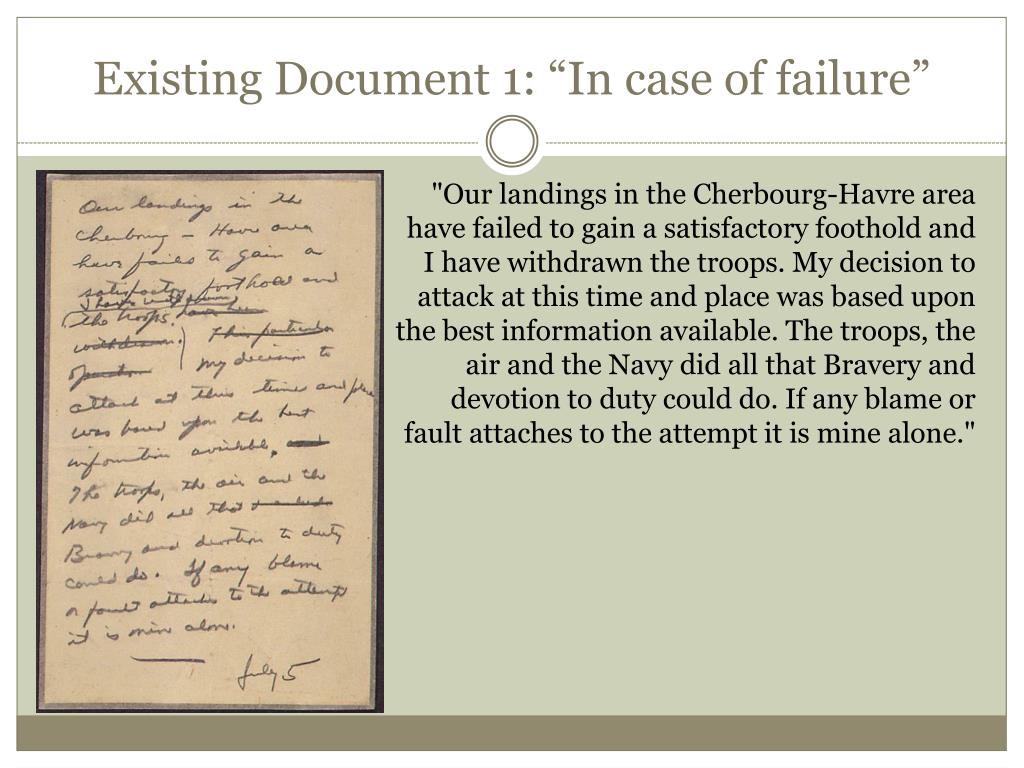 Existing Document 1: “In case of failure”
Our landings in the
Cherbourg - Havre area
have failed to gain a
satisfactory foothold and
I have withdrawn
the troops. have been
withdrawn. This particular
operation My decision to
attack at this time and place
was based upon the best
information available, and
The troops, the air and the
Navy did all that
Bravery and devotion to duty
could do. If any blame
or fault attaches to the attempt
it is mine alone.
July 5
"Our landings in the Cherbourg-Havre area
have failed to gain a satisfactory foothold and
I have withdrawn the troops. My decision to
attack at this time and place was based upon
the best information available. The troops, the
air and the Navy did all that Bravery and
devotion to duty could do. If any blame or
fault attaches to the attempt it is mine alone."